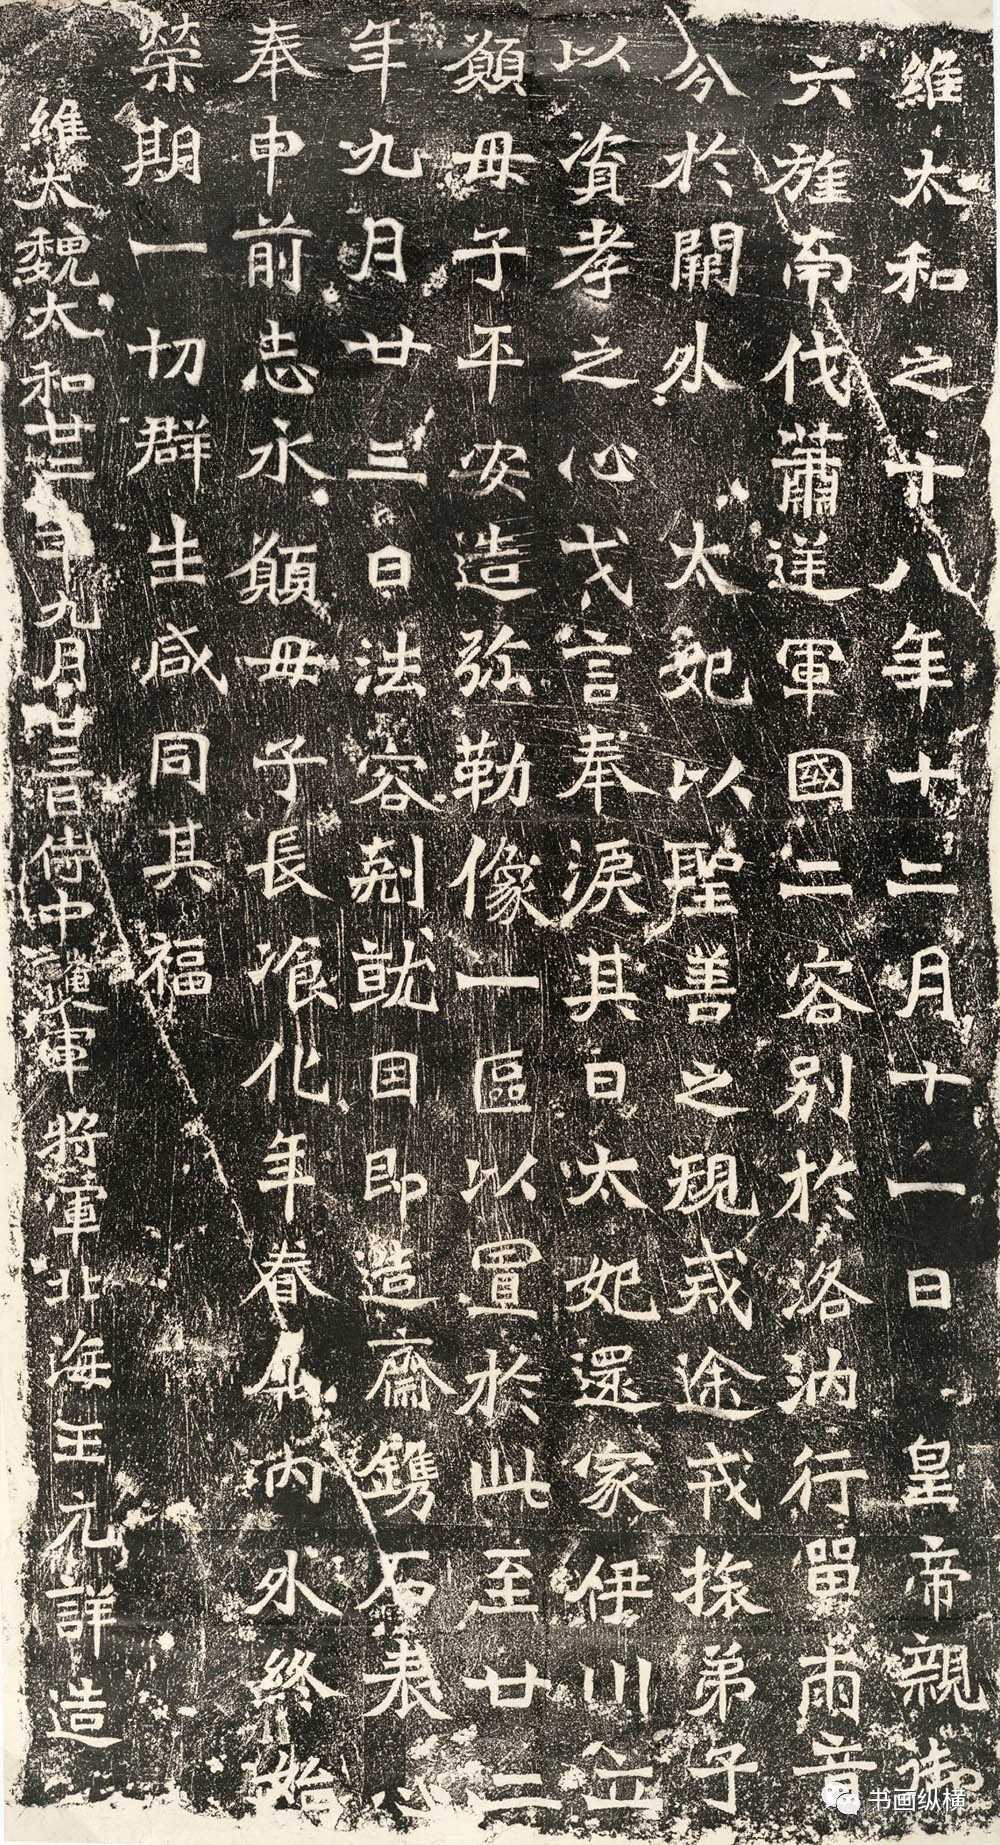 維太和之十八年十二月十一日皇帝親御
六旌南伐蕭逆軍國二容別於洛汭行留兩音
分於關外太妃以聖善之規戒途戎旅弟子
以資孝之心戈言奉淚其日太妃還家伊川立
願母子平安造弥勒像一區以置於此至廿二
年九月廿三日法容剋就因即造齋鐫石表心
奉申前志永願母子長飡化年眷內外終始
榮期一切群生咸同其福
維太魏太和廿二年九月廿三日侍中護軍將軍北海王元詳造
书画纵横